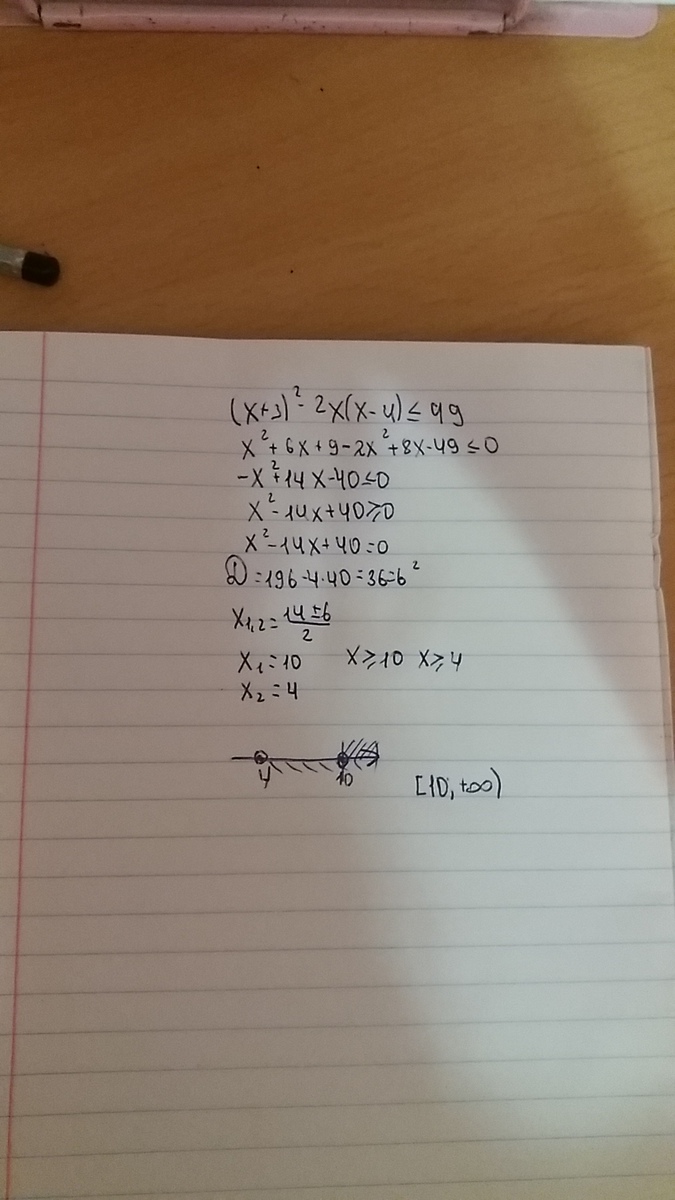 (x+3)² - 2x(x-4) ≤ 49
x² + 6x + 9 - 2x² + 8x - 49 ≤ 0
-x² + 14x - 40 ≤ 0
x² - 14x + 40 ≥ 0
x² - 14x + 40 = 0
D = 196 - 4·40 = 36 = 6²
x₁,₂ = (14 ± 6)/2
x₁ = 10 x ≥ 10 x ≥ 4
x₂ = 4
4 10
[10, +∞)